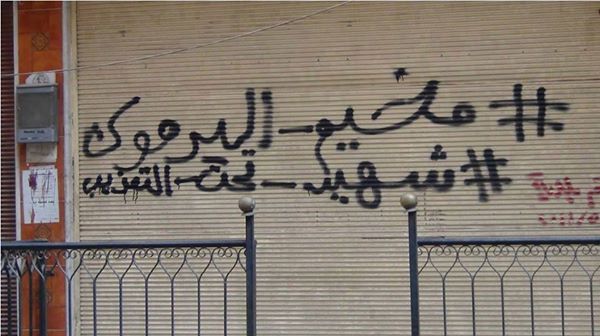 #مخيم_اليرموك
#شهيد_تحت_التعذيب